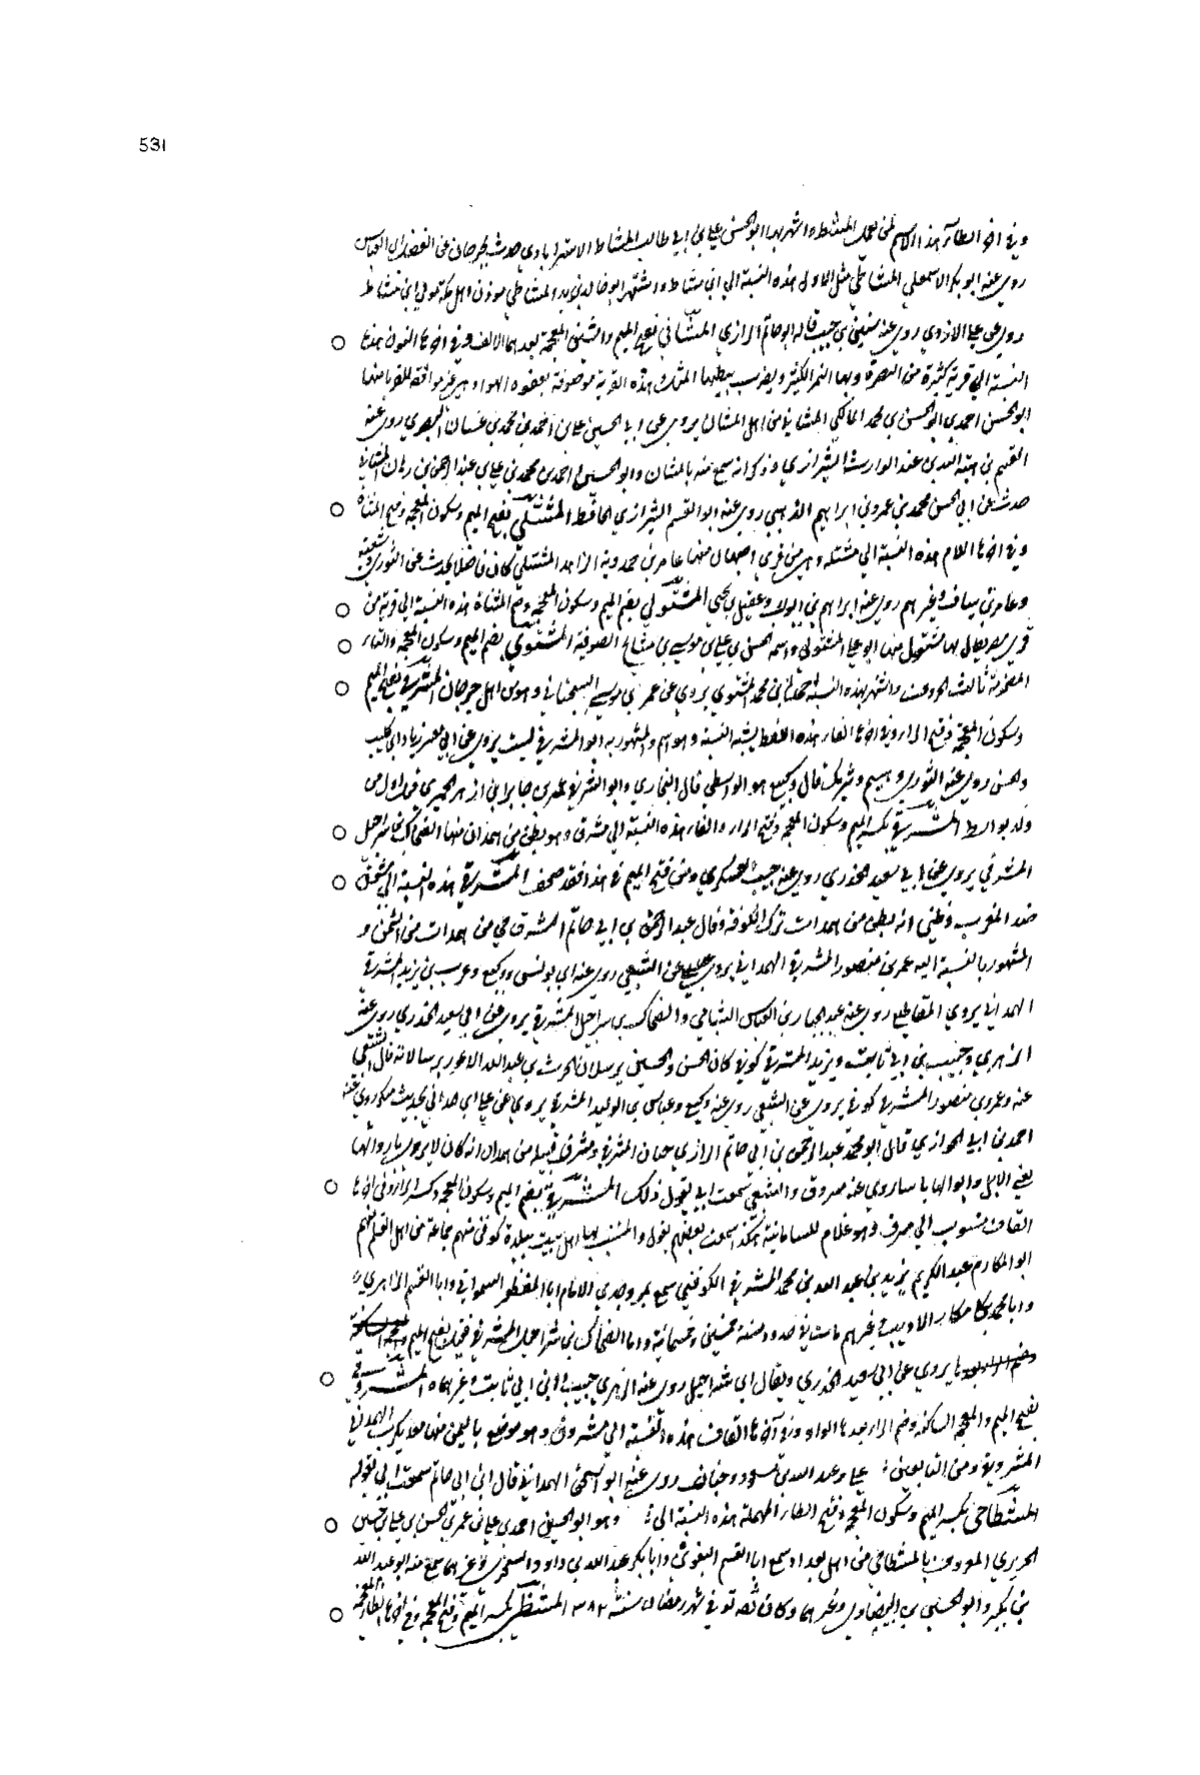 531
وفي اخرها الطاء هذا الاسم لمن يعمل المشط واشتهر بهذا ابو الحسن علي بن ابي طالب المشاط الاستراباذي حدث بجرجان عن الفضل بن العباس
روى عنه ابو بكر الاسمعيلي المشاطي مثل الاول هذه النسبة الى ابن مشاط واشتهر ابو خالد يزيد المشاطي موذن اهل مكة مولى ابن مشاط
روى عن علي الازدي روى عنه سفيان بن حبيب قاله ابو حاتم الرازي المشاني بفتح الميم والشين المعجمة بعدهما الالف وفي اخرها النون هذه
النسبة الى قرية كثيرة من البصرة وبها التمر الكثير ويضرب بطيبها المثل هذه القرية موصوفة بعفونة الهواء وهي غير موافقة للغربا منها
ابو الحسن احمد بن ابو الحسن بن محمد المالكي المشاني من اهل المشان يروي عن ابي الحسين علي بن احمد بن محمد بن غسان البصري روى عنه
القسم هبة الله بن عبد الوارث الشيرازي وذكر انه سمع منه بالمشان وابو الحسين احمد بن محمد بن علي بن عبد الرحمن بن المشاني
حدث عن ابي الحسن محمد بن عمرو بن ابراهيم الذهبي روى عنه ابو القسم الشيرازي الحافظ المشتلي بفتح الميم وسكون المعجمة وفتح المثناة
وفي اخرها اللام هذه النسبة الى مشتلة وهي من قرى اصبهان منها عامر بن حمدويه الزاهد المشتلي كان فاضلا يحدث عن الثوري وشعبة
وعامر بن يساف وغيرهم روى عنه ابراهيم بن ايوب وعقيل بن يحيى المشتولي بضم الميم وسكون المعجمة وضم المثناة هذه النسبة الى قرية من
قرى مصر يقال لها مشتول منها ابو علي المشتولي واسمه الحسن بن علي بن موسى بن مشايخ الصوفية المشتوي بضم الميم وسكون المعجمة والتاء
المضمومة ثالث الحروف واشتهر بهذه النسبة احمد بن محمد المشتوي يروي عن عمر بن موسى السختياني وهو من اهل جرجان المشرفي بفتح الميم
وسكون المعجمة وفتح الراء وفي اخرها الفاء هذه اللفظة يشبه النسبة وهو اسم والمشهور به ابو المشرفي ليث يروي عن ابي معشر زياد بن كليب
والحسن روى عنه الثوري وهشيم وشريك قال وكيع هو الواسطي قال البخاري وابو المشرفي عمرو بن جابر بن ازهر الحميري قيل اول من
ولد بواسط المشرفي بكسر الميم وسكون المعجمة وفتح الراء والفاء هذه النسبة الى مشرف وهو بطن من همدان منها الضحاك بن شراحيل
المشرفي يروي عن ابي سعيد الخدري روى عنه حبيب العسكري ومن فتح الميم في هذا فقد صحف المشرقي هذه النسبة الى المشرق
ضد المغرب وظني انه بطن من همدان نزل الكوفة وقال عبد الرحمن بن ابي حاتم المشرق حي من همدان من اليمن و
المشهور بالنسبة اليه عمر بن منصور المشرقي الهمداني يروي عن الشعبي روى عنه ابن يونس ووكيع وعريب بن يزيد المشرقي
الهمداني يروي المقاطيع روى عنه عبد الجبار بن العباس الشبامي والضحاك بن شراحيل المشرقي يروي عن ابي سعيد الخدري روى عنه
الزهري وحبيب بن ابي ثابت ويزيد المشرقي كوفي كان الحسن والحسين يرسلان الحرث بن عبد الله الاعور برسالاته قال الشعبي
عنه وعمرو بن منصور المشرقي كوفي يروي عن الشعبي روى عنه وكيع وعباس بن الوليد المشرقي يروي عن علي بن المديني بحديث منكر روى عنه
احمد بن ابي الحواري قال ابو محمد عبد الرحمن بن ابي حاتم الرازي حبان المشرقي ومشرق قبيلة من همدان انه كان لا يرى باروائها
يعني الابل وابوالها باسا روى عنه مسروق والشعبي سمعت ابي يقول ذلك المشرقي بضم الميم وسكون المعجمة وكسر الراء وفي اخرها
القاف منسوب الى مشرق وهو غلام للسامانية هكذا سمعت بعضهم يقول والمنتسب بها اهل بيت ببلدة كوفن منهم جماعة من اهل القلم منهم
ابو المكارم عبد الكريم بن يزيد بن عبد الله بن محمد المشرقي الكوفني سمع بمرو جدي الامام ابا المظفر السمعاني وابا القسم الزاهري
وابا محمد كامكار الاديب وغيرهم مات في حدود سنة خمسين وخمسمائة واما الضحاك بن شراحيل المشرقي فقيل بفتح الميم
يروي عن ابي سعيد الخدري ويقال ابن شراحيل روى عنه الزهري حبيب بن ابي ثابت وغيرهما المشروقي
بفتح الميم والمعجمة الساكنة وضم الراء بعدها الواو وفي آخرها القاف هذه النسبة الى مشروق وهو موضع باليمن منها معديكرب الهمداني
المشروقي ومن التابعين: علي وعبد الله بن مسعود وخباب روى عنه ابو اسحق الهمداني قال ابن ابي حاتم سمعت ابي يقوله
المشطاحي بكسر الميم وسكون المعجمة وفتح الطاء المهملة هذه النسبة الى: وهو ابو الحسين احمد بن علي بن عمر بن الحسن بن علي بن حسين
الحريري المعروف بالمشطاحي من اهل بغداد سمع ابا القسم البغوي وابا بكر عبد الله بن داود السجزي وغيرهما سمع منه ابو عبد الله
بن بكير وابو الحسين بن البيضاوي وغيرهما وكان ثقة توفي في شهر رمضان سنة ٣٨٢ المشظي بكسر الميم وفتح المعجمة وفي اخرها الظاء المعجمة